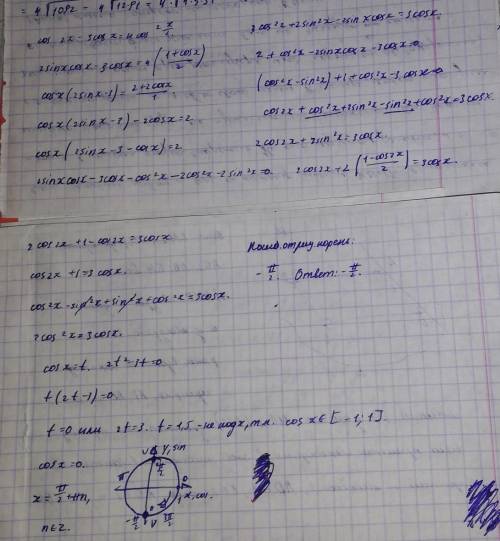 = 4√1082 - 4√1281 = 4 ·
cos 2x - 3cosx = 4cos² x/2
2sinxcosx - 3cosx = 4 ( (1+cosx)/2 )
cosx (2sinx - 3) = (2+2cosx)/1
cosx (2sinx - 3) - 2cosx = 2
cosx (2sinx - 3 - cosx) = 2
2sinxcosx - 3cosx - cos²x - 2cos²x - 2sin²x = 0
3cos²x + 2sin²x - 2sinxcosx = 3cosx.
2 + cos²x - 2sinxcosx - 3cosx = 0
(cos²x - sin²x) + 1 + cos²x - 3cosx = 0
cos2x + cos²x + 3sin²x - sin²x + cos²x = 3cosx.
2cos2x + 2sin²x = 3cosx.
2cos2x + 2 ( (1-cos2x)/2 ) = 3cosx.
2cos2x + 1 - cos2x = 3cosx
cos2x + 1 = 3cosx.
cos²x - sin²x + sin²x + cos²x = 3cosx.
2cos²x = 3cosx.
cosx = t. 2t² - 3t = 0
t(2t - 3) = 0
t = 0 или 2t = 3. t = 1,5 - не подх, т.к. cos x ∈ [-1; 1].
cosx = 0.
x = π/2 + πn,
n ∈ Z.
y, sin
π/2
π
0
x, cos.
1
-π/2
3π/2
отриц. корень:
-π/2. Ответ: -π/2.